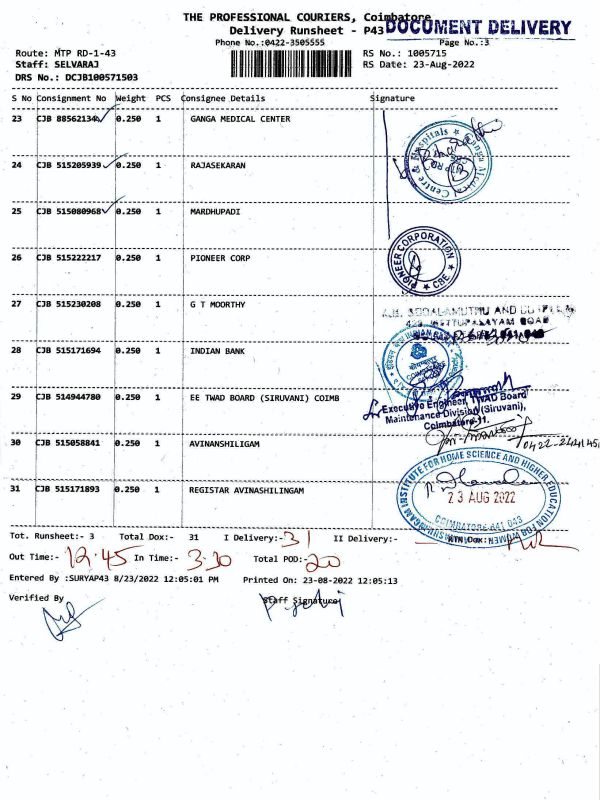 THE PROFESSIONAL COURIERS, Coimbatore
Delivery Runsheet - P43
DOCUMENT DELIVERY
Phone No.:0422-3505555
Page No.:3
Route: MTP RD-1-43
RS No.: 1005715
Staff: SELVARAJ
RS Date: 23-Aug-2022
DRS No.: DCJB100571503
S No Consignment No Weight PCS Consignee Details Signature
23 CJB 88562134 0.250 1 GANGA MEDICAL CENTER
Ganga Medical Centre & Hospitals
MTP RD
24 CJB 515205939 0.250 1 RAJASEKARAN
25 CJB 515080968 0.250 1 MARDHUPADI
26 CJB 515222217 0.250 1 PIONEER CORP
PIONEER CORPORATION
CBE
27 CJB 515230208 0.250 1 G T MOORTHY
28 CJB 515171694 0.250 1 INDIAN BANK
29 CJB 514944780 0.250 1 EE TWAD BOARD (SIRUVANI) COIMB
Executive Engineer, TWAD Board
Maintenance Division (Siruvani),
Coimbatore-11.
30 CJB 515058841 0.250 1 AVINANSHILIGAM
31 CJB 515171893 0.250 1 REGISTAR AVINASHILINGAM
INSTITUTE FOR HOME SCIENCE AND HIGHER EDUCATION FOR WOMEN
23 AUG 2022
COIMBATORE-641 043
Tot. Runsheet:- 3 Total Dox:- 31 I Delivery:- 31 II Delivery:-
Out Time:- 12.45 In Time:- 3.30 Total POD:- 20
Entered By :SURYAP43 8/23/2022 12:05:01 PM Printed On: 23-08-2022 12:05:13
Verified By
Staff Signature